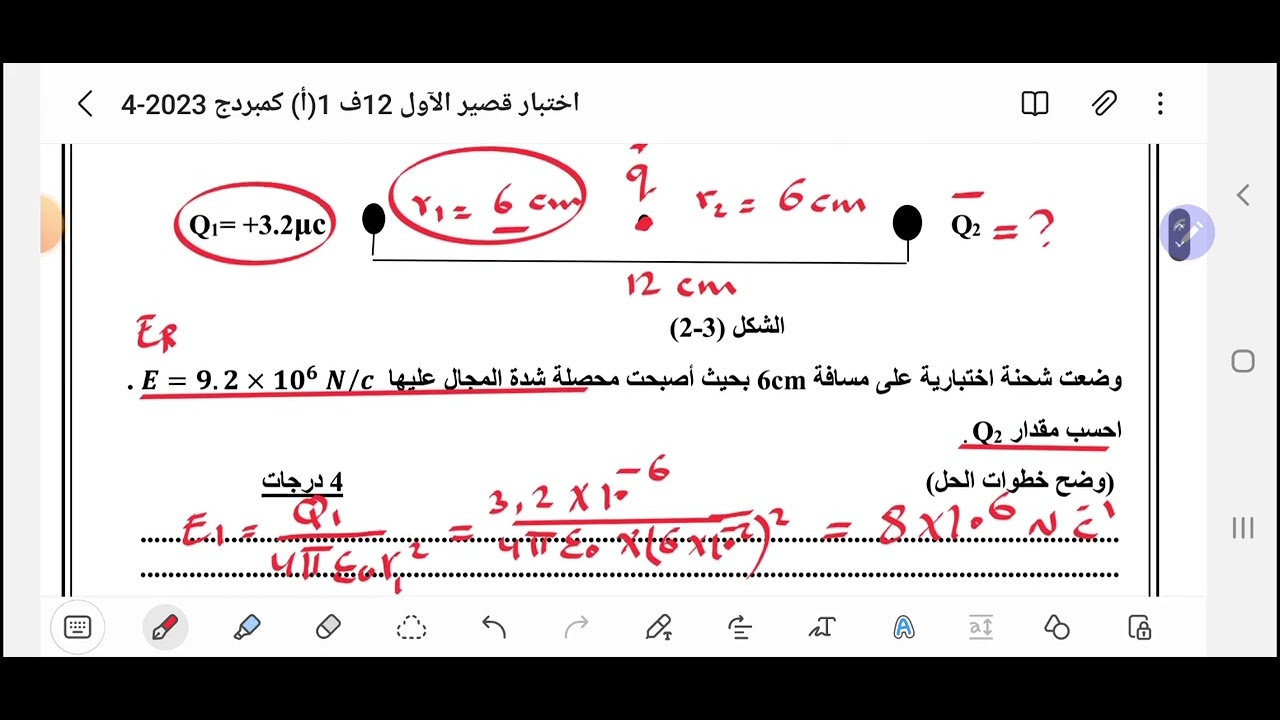 اختبار قصير الآول 12ف 1(أ) كمبردج 2023-4
Q₁= +3.2µc r₁ = 6 cm q r₂ = 6 cm Q₂ = ?
12 cm
الشكل (3-2)
E_R
وضعت شحنة اختبارية على مسافة 6cm بحيث أصبحت محصلة شدة المجال عليها E = 9.2 × 10⁶ N/c .
احسب مقدار Q₂.
(وضح خطوات الحل) 4 درجات
E₁ = Q₁ / 4πε₀r₁² = 3,2 × 10⁻⁶ / 4πε₀ × (6 × 10⁻²)² = 8 × 10⁶ N C⁻¹